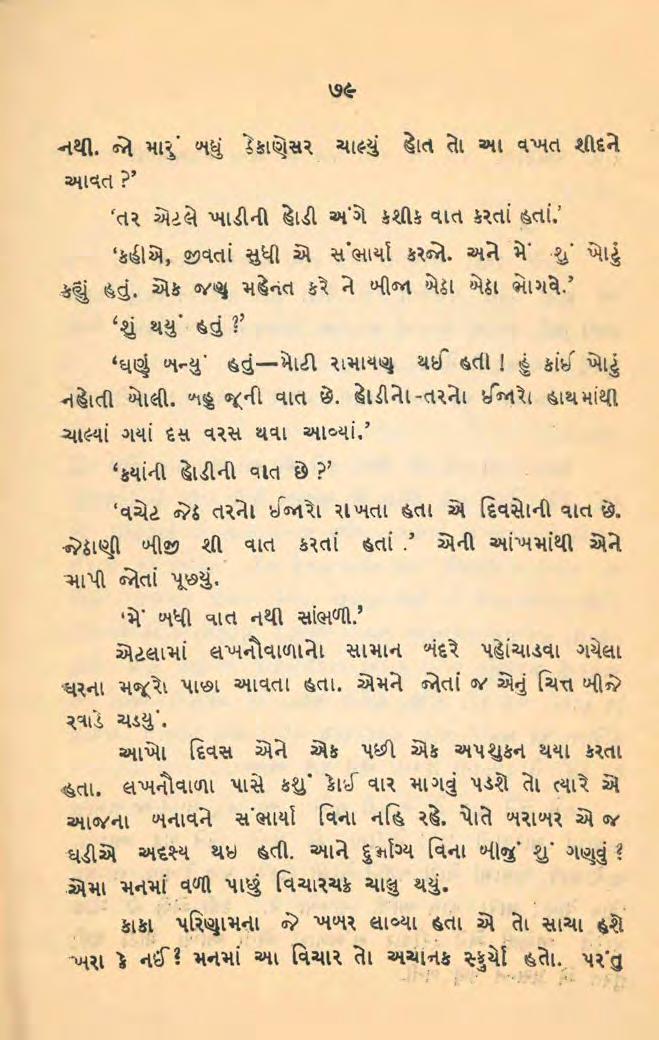 ૭૯
નથી. જો મારું બધું ઠેકાણેસર ચાલ્યું હોત તો આ વખત શીદને
આવત ?’
‘તર એટલે ખાડીની હોડી અંગે કશીક વાત કરતાં હતાં.’
‘કહીએ, જીવતાં સુધી એ સંભાર્યા કરજો. અને મેં શું ખોટું
કહ્યું હતું. એક જણ મહેનત કરે ને બીજા બેઠા બેઠા ભોગવે.’
‘શું થયું હતું ?’
‘ઘણું બન્યું હતું—મોટી રામાયણ થઈ હતી ! હું કાંઈ ખોટું
નહોતી બોલી. બહુ જૂની વાત છે. હોડીનો-તરનો ઈજારો હાથમાંથી
ચાલ્યાં ગયાં દસ વરસ થવા આવ્યાં.’
‘કયાંની હોડીની વાત છે ?’
‘વચેટ જેઠ તરનો ઈજારો રાખતા હતા એ દિવસોની વાત છે.
જેઠાણી બીજી શી વાત કરતાં હતાં .’ એની આંખમાંથી એને
માપી જોતાં પૂછ્યું.
‘મેં બધી વાત નથી સાંભળી.’
એટલામાં લખનૌવાળાનો સામાન બંદરે પહોંચાડવા ગયેલા
ઘરના મજૂરો પાછા આવતા હતા. એમને જોતાં જ એનું ચિત્ત બીજે
રવાડે ચડયું.
આખો દિવસ એને એક પછી એક અપશુકન થયા કરતા
હતા. લખનૌવાળા પાસે કશું કોઈ વાર માગવું પડશે તો ત્યારે એ
આજના બનાવને સંભાર્યા વિના નહિ રહે. પોતે બરાબર એ જ
ઘડીએ અદશ્ય થઇ હતી. આને દુર્ભાગ્ય વિના બીજું શું ગણવું ?
એમા મનમાં વળી પાછું વિચારચક્ર ચાલુ થયું.
કાકા પરિણામના જે ખબર લાવ્યા હતા એ તો સાચા હશે
ખરા કે નઈ ? મનમાં આ વિચાર તો અચાનક સ્ફુર્યો હતો. પરંતુ